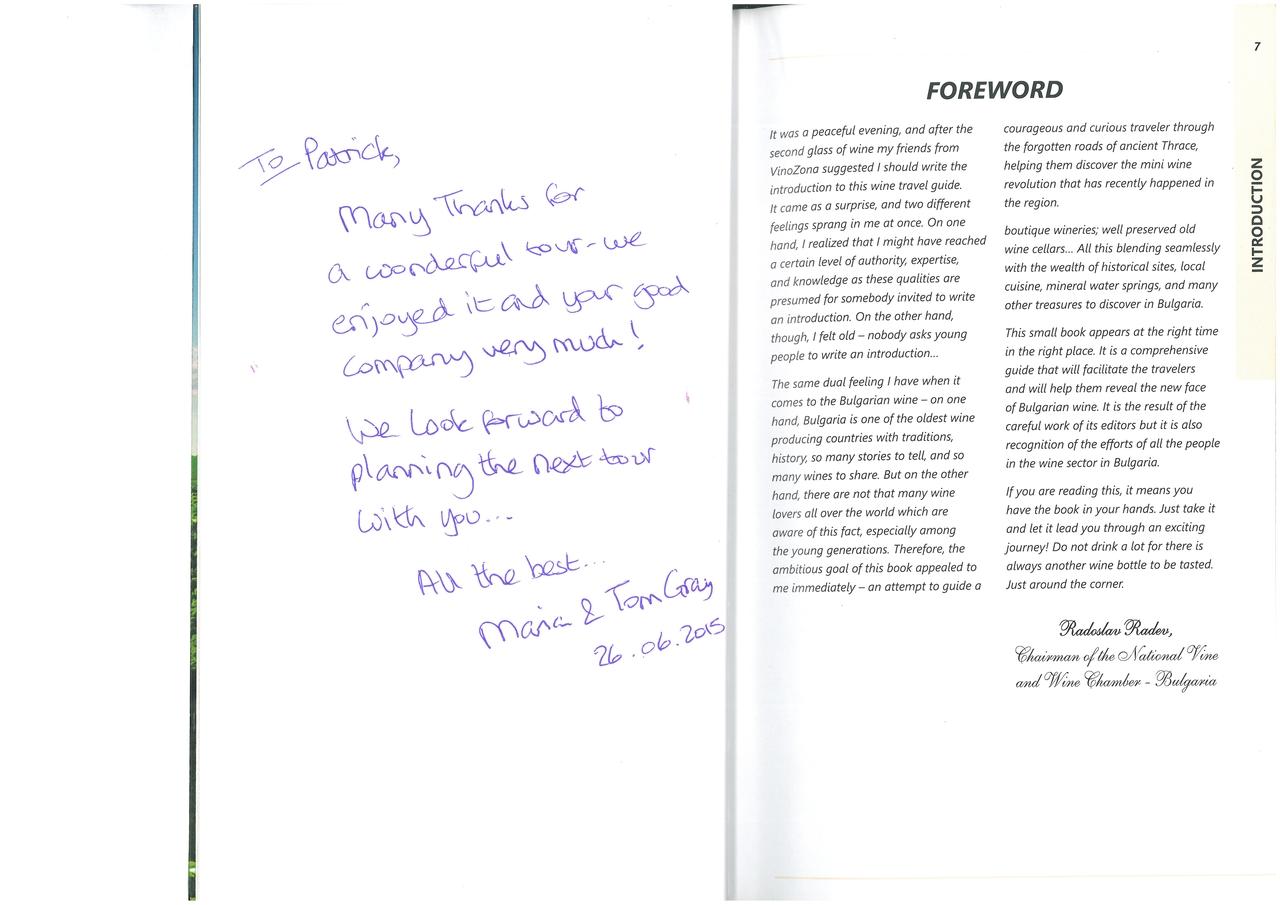 To Patrick,
Many Thanks for
a wonderful tour-we
enjoyed it and your good
company very much!
We look forward to
planning the next tour
with you...
All the best...
Maria & Tom Gray
26.06.2015
7
FOREWORD
It was a peaceful evening, and after the
second glass of wine my friends from
VinoZona suggested I should write the
introduction to this wine travel guide.
It came as a surprise, and two different
feelings sprang in me at once. On one
hand, I realized that I might have reached
a certain level of authority, expertise,
and knowledge as these qualities are
presumed for somebody invited to write
an introduction. On the other hand,
though, I felt old – nobody asks young
people to write an introduction...
The same dual feeling I have when it
comes to the Bulgarian wine – on one
hand, Bulgaria is one of the oldest wine
producing countries with traditions,
history, so many stories to tell, and so
many wines to share. But on the other
hand, there are not that many wine
lovers all over the world which are
aware of this fact, especially among
the young generations. Therefore, the
ambitious goal of this book appealed to
me immediately – an attempt to guide a
courageous and curious traveler through
the forgotten roads of ancient Thrace,
helping them discover the mini wine
revolution that has recently happened in
the region.
boutique wineries; well preserved old
wine cellars... All this blending seamlessly
with the wealth of historical sites, local
cuisine, mineral water springs, and many
other treasures to discover in Bulgaria.
This small book appears at the right time
in the right place. It is a comprehensive
guide that will facilitate the travelers
and will help them reveal the new face
of Bulgarian wine. It is the result of the
careful work of its editors but it is also
recognition of the efforts of all the people
in the wine sector in Bulgaria.
If you are reading this, it means you
have the book in your hands. Just take it
and let it lead you through an exciting
journey! Do not drink a lot for there is
always another wine bottle to be tasted.
Just around the corner.
Radoslav Radev,
Chairman of the National Vine
and Wine Chamber - Bulgaria
INTRODUCTION